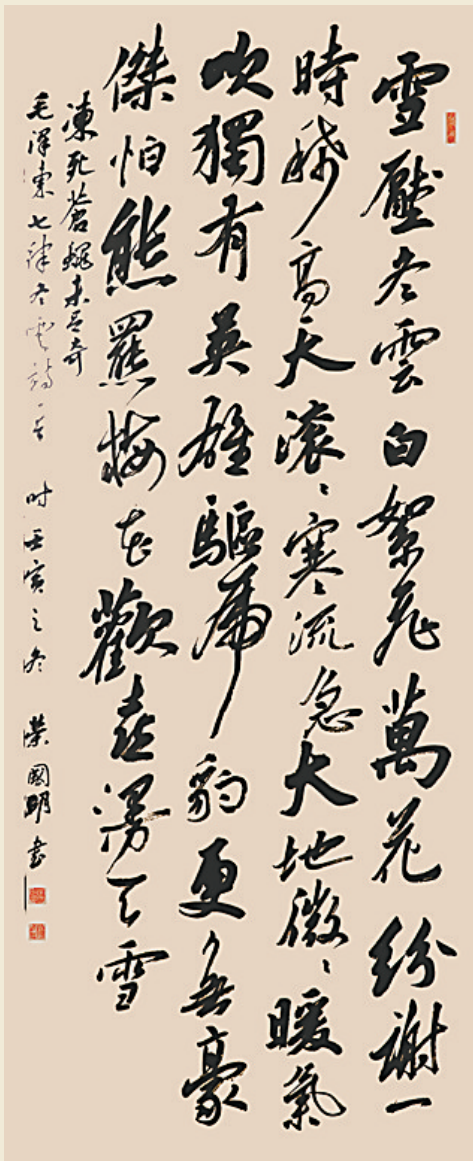 雪壓冬雲白絮飛萬花紛謝一
時稀高天滚〻寒流急大地微〻暖氣
吹獨有英雄驅虎豹更無豪
傑怕熊羆梅花歡喜漫天雪
凍死蒼蠅未足奇
毛澤東七律冬雲詩一首 时壬寅之冬 榮國明書